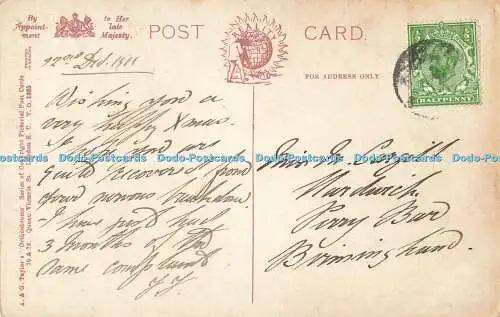 By Appointment
to Her late Majesty.
POST CARD.
FOR ADDRESS ONLY.
HALFPENNY
A. & G. Taylor's "Orthochrome" Series of Copyright Pictorial Post Cards
70 & 78, Queen Victoria St. London E.C. V.O. 1885
22nd Dec. 1911
Wishing you a
very happy Xmas.
I hope you are
quite recovered from
your nervous breakdown.
I have just had
3 months of the
same complaint
Miss
Hardwick
Perry Bar
Birmingham.
Dodo-Postcards Dodo-Postcards Dodo-Postcards Dodo-Postcards Dodo-Postcards Dodo-Postcards